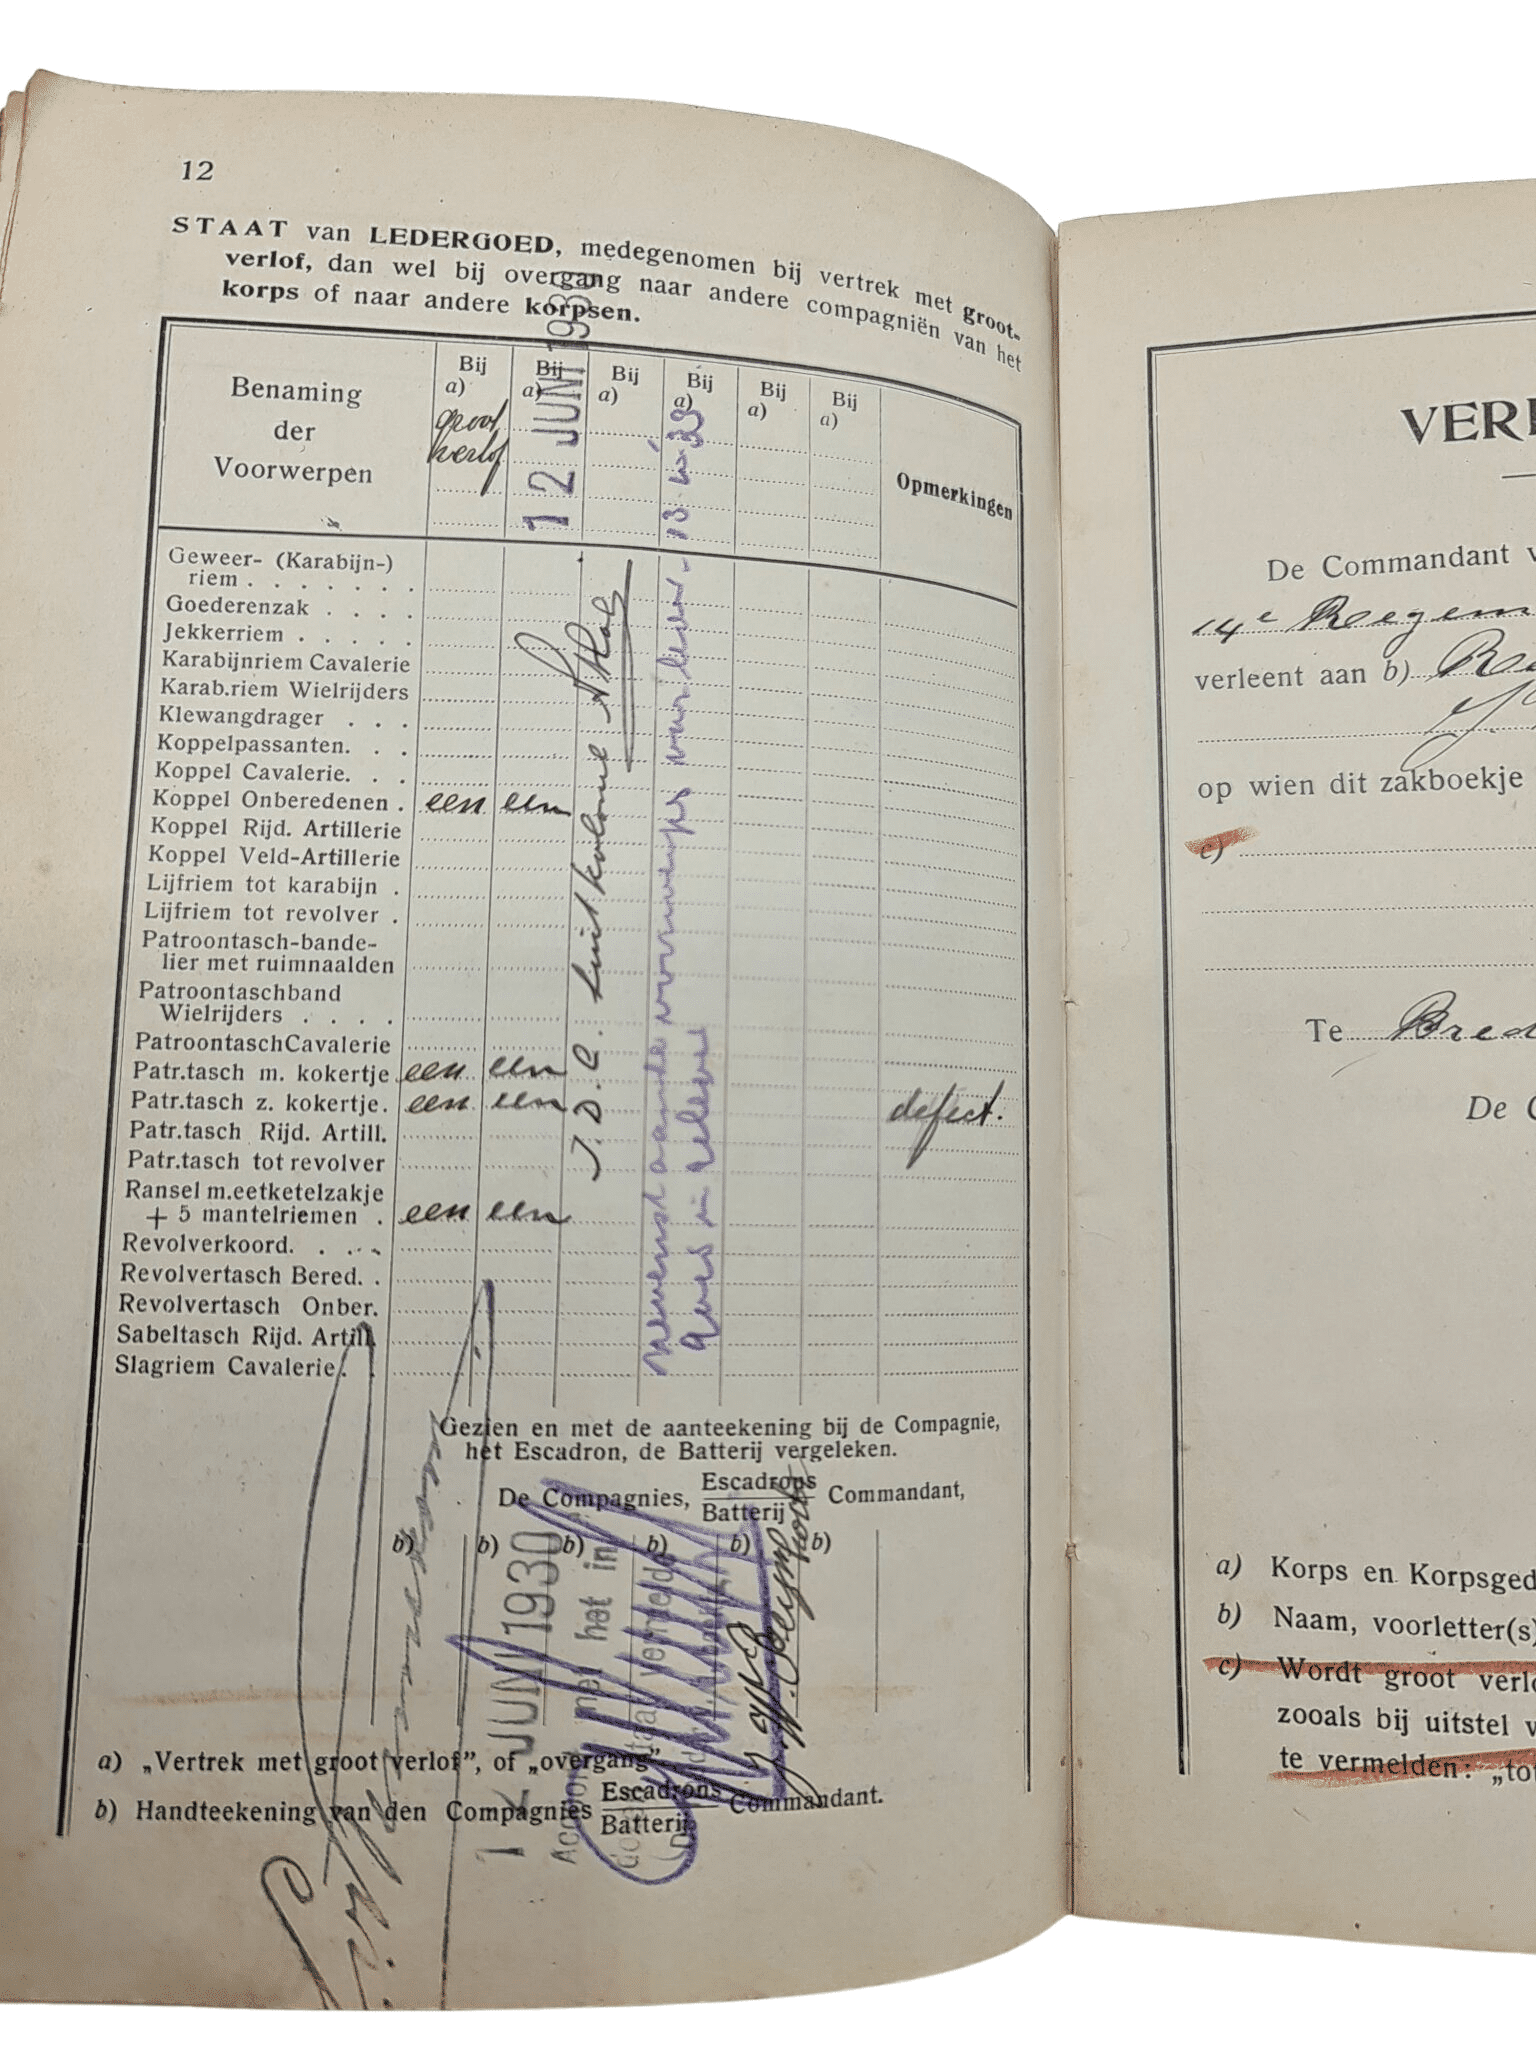 12
STAAT van LEDERGOED, medegenomen bij vertrek met groot-
verlof, dan wel bij overgang naar andere compagniën van het
korps of naar andere korpsen.
Benaming
der
Voorwerpen
Bij
a)
groot
verlof
Bij
a)
12 JUNI 1930
Bij
a)
Bij
a)
Bij
a)
Bij
a)
Opmerkingen
Geweer- (Karabijn-)
riem . . . . . .
Goederenzak . . . .
Jekkerriem . . . . .
Karabijnriem Cavalerie
Karab.riem Wielrijders
Klewangdrager . . .
Koppelpassanten. . .
Koppel Cavalerie. . .
Koppel Onberedenen . een een
Koppel Rijd. Artillerie
Koppel Veld-Artillerie
Lijfriem tot karabijn .
Lijfriem tot revolver .
Patroontasch-bande-
lier met ruimnaalden
Patroontaschband
Wielrijders . . . .
PatroontaschCavalerie
Patr.tasch m. kokertje een een
Patr.tasch z. kokertje. een een defect.
Patr.tasch Rijd. Artill.
Patr.tasch tot revolver
Ransel m.eetketelzakje
+ 5 mantelriemen . een een
Revolverkoord. . . .
Revolvertasch Bered. .
Revolvertasch Onber.
Sabeltasch Rijd. Artill.
Slagriem Cavalerie . .
Nevenstaande voorwerpen
Gezien en met de aanteekening bij de Compagnie,
het Escadron, de Batterij vergeleken.
De Compagnies, Escadrons Commandant,
Batterij
b) b) b) b) b) b)
12 JUNI 1930
met het in
vermelde
a) „Vertrek met groot verlof”, of „overgang”
b) Handteekening van den Compagnies Escadrons Commandant.
Batterij
VER
De Commandant v
14e Regem
verleent aan b)
op wien dit zakboekje
c)
Te Bred
De C
a) Korps en Korpsged
b) Naam, voorletter(s)
c) Wordt groot verlo
zooals bij uitstel v
te vermelden: „tot